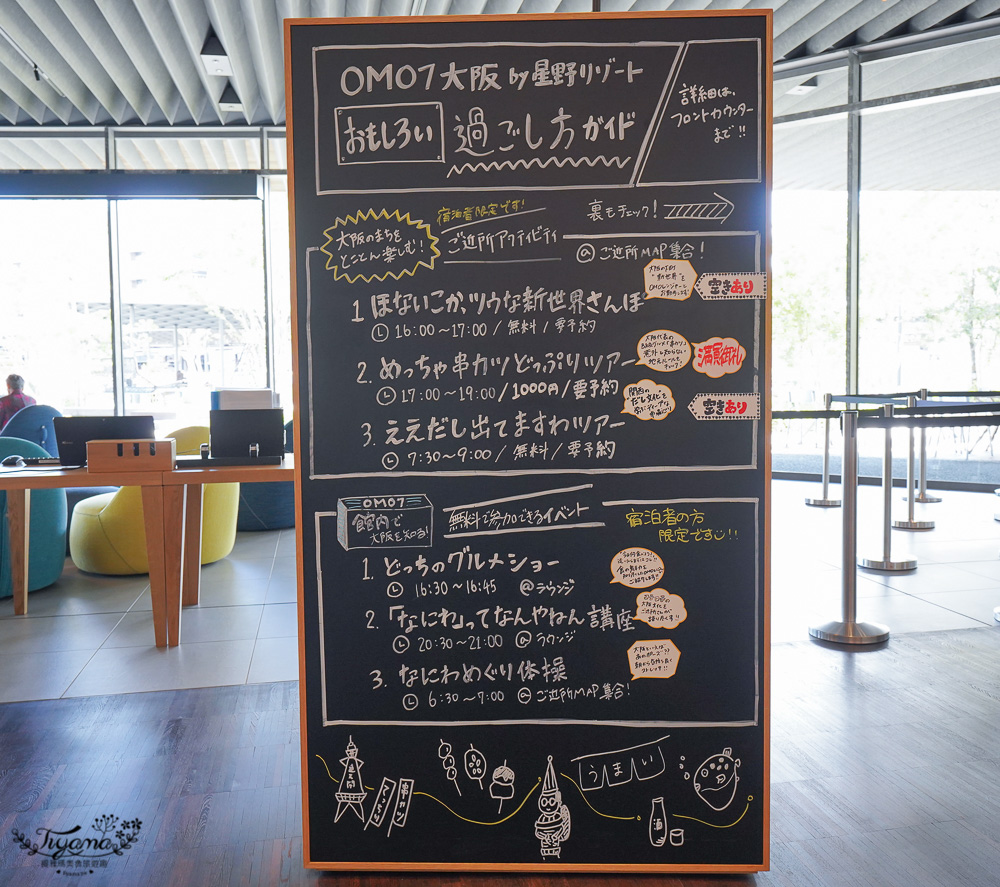 OMO7大阪 by 星野リゾート
おもしろい 過ごし方ガイド
詳細は、
フロントカウンター
まで!!
大阪のまちを
とことん楽しむ!
宿泊者限定です!
ご近所アクティビティ
裏もチェック!
@ご近所MAP集合!
1 ほないこか、ツウな新世界さんぽ
16:00~17:00 / 無料 / 要予約
大阪の下町
"新世界"を
OMOレンジャーと
お散歩します
空きあり
2. めっちゃ串カツどっぷりツアー
17:00~19:00 / 1000円 / 要予約
満員御礼
3. ええだし出てますわツアー
7:30~9:00 / 無料 / 要予約
関西の
だし文化を
空きあり
OMO7
館内で
大阪を知る!
無料で参加できるイベント
宿泊者の方
限定です!!
1. どっちのグルメショー
16:30~16:45 @ラウンジ
2. 「なにわ」ってなんやねん講座
20:30~21:00 @ラウンジ
3. なにわめぐり体操
6:30~7:00 @ご近所MAP集合!
大阪といえば
通天閣
串カツ
うまい
酒
Tiyama